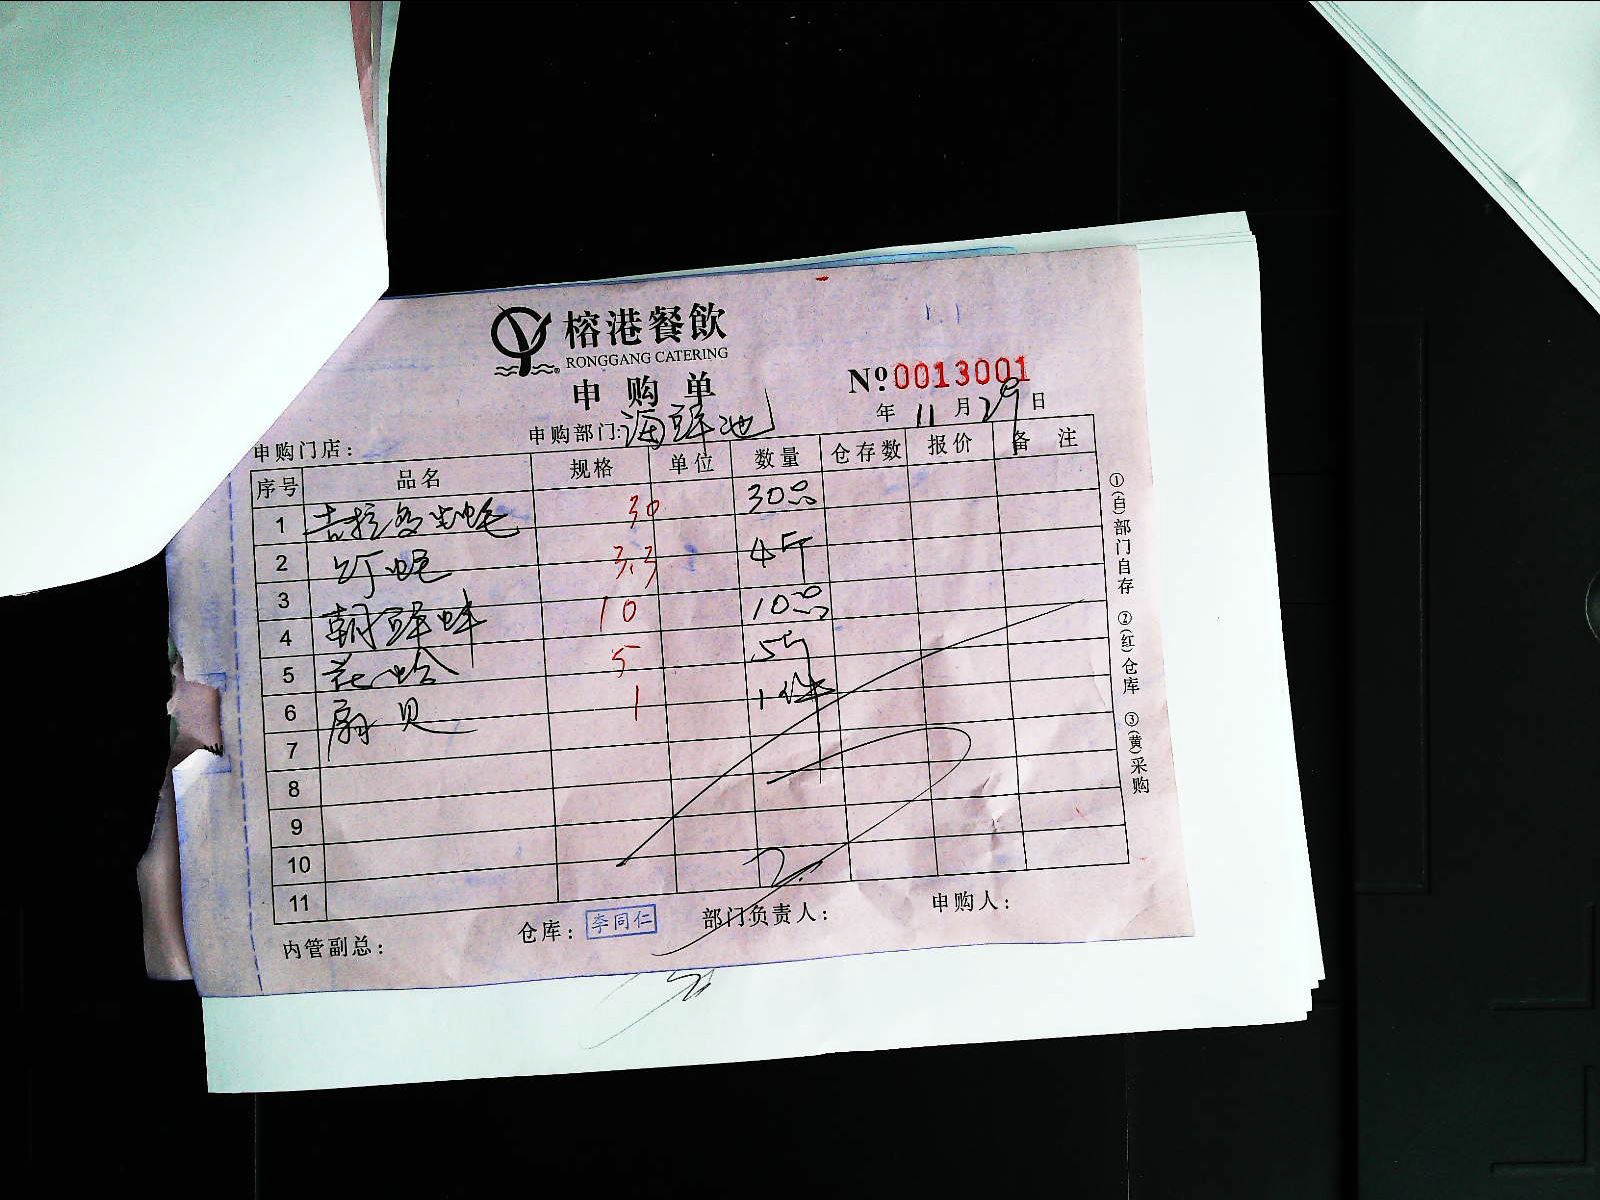 榕港餐飲
RONGGANG CATERING
申购单
Nº 0013001
年 11 月 29 日
申购门店: 申购部门: 海鲜池
序号 品名 规格 单位 数量 仓存数 报价 备 注
1 吉拉多生蚝 30 30只
2 3.3 4斤
3
4 10 10只
5 花蛤 5 5斤
6 扇贝 1 1件
7
8
9
10
11
内管副总: 仓库: 李同仁 部门负责人: 申购人:
①(白)部门自存 ②(红)仓库 ③(黄)采购